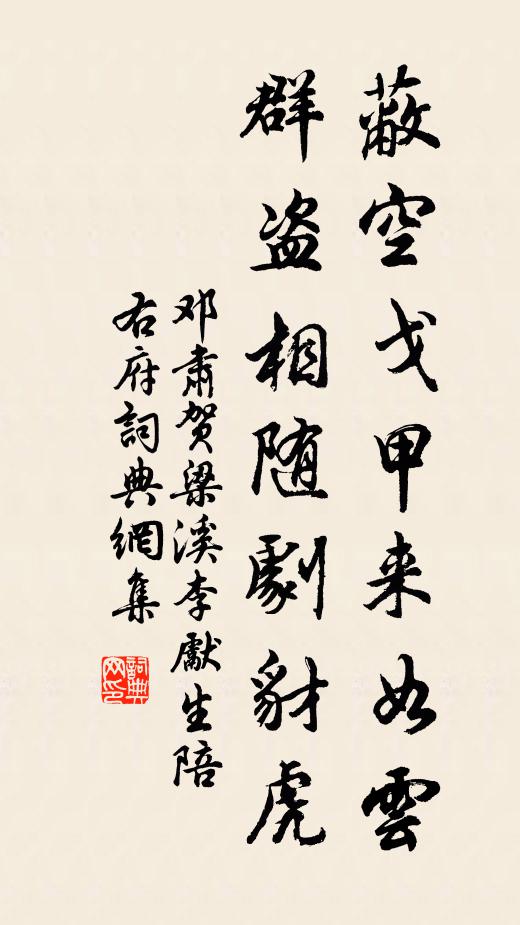 蔽空戈甲来如雲
群盗相随劇豺虎
邓肅贺梁溪李獻生陪
右府詞典網集
詞典網印